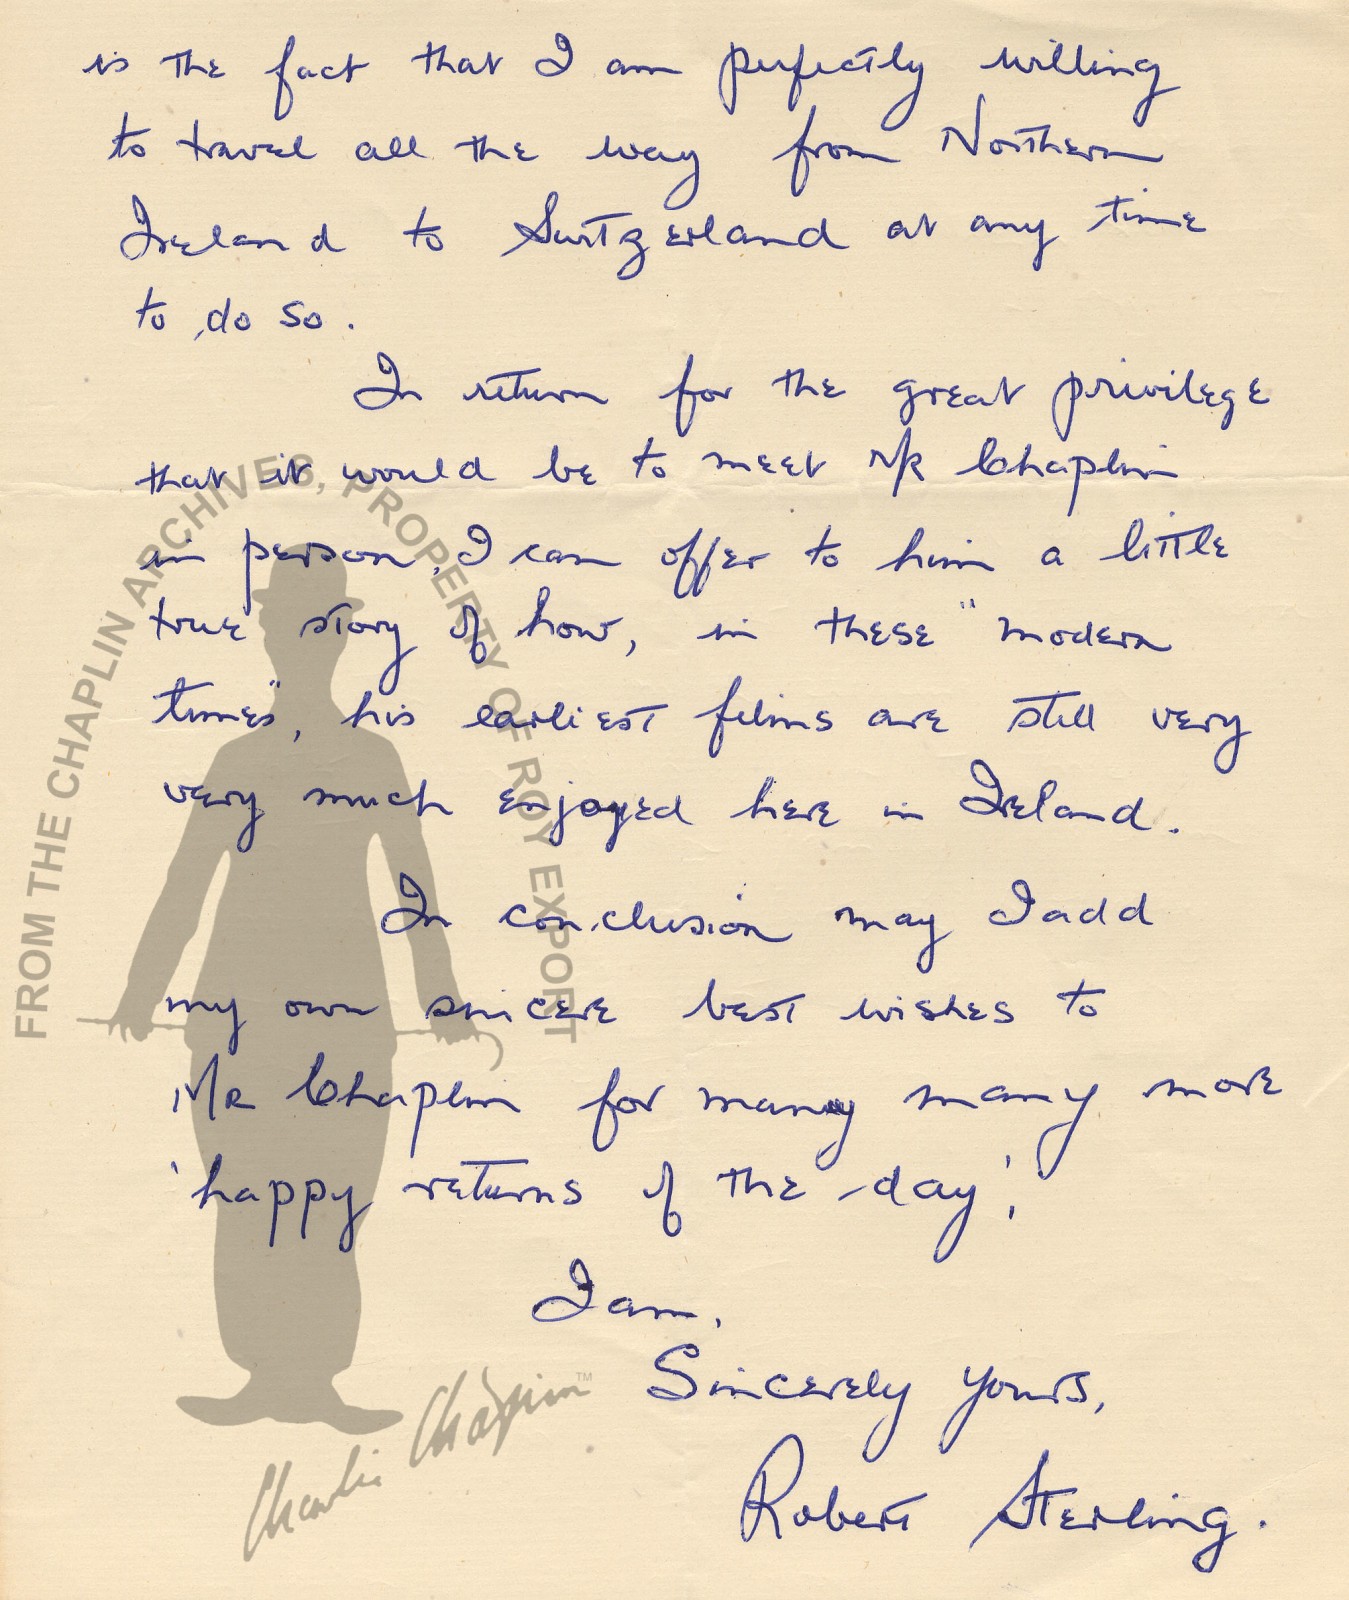 is the fact that I am perfectly willing
to travel all the way from Northern
Ireland to Switzerland at any time
to do so.
In return for the great privilege
that it would be to meet Mr Chaplin
in person, I can offer to him a little
true story of how, in these "modern
times", his earliest films are still very
very much enjoyed here in Ireland.
In conclusion may I add
my own sincere best wishes to
Mr Chaplin for many many more
'happy returns of the day'.
I am,
Sincerely yours,
Robert Sterling.
FROM THE CHAPLIN ARCHIVES, PROPERTY OF ROY EXPORT
Charlie Chaplin™